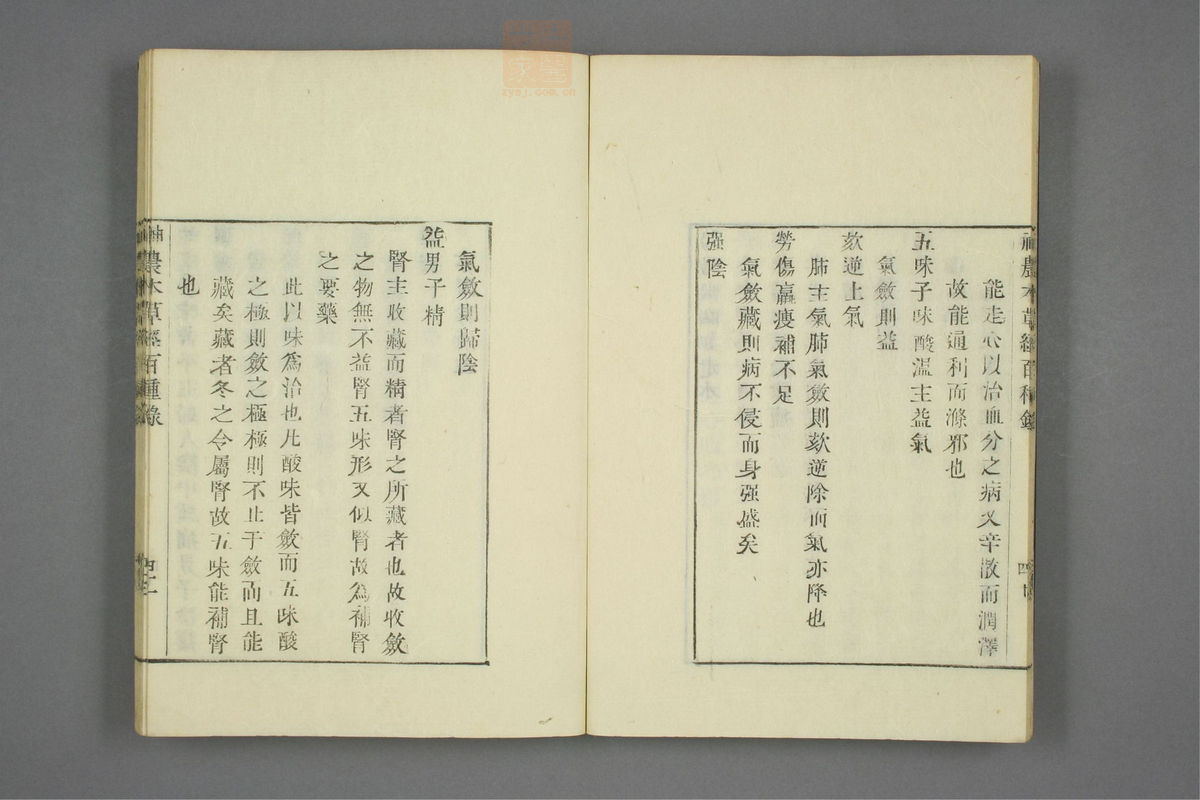 神農本草經百種錄
能走心以治血分之病又辛散而潤澤
故能通利而滌邪也
五味子味酸溫主益氣
氣斂則益
欬逆上氣
肺主氣肺氣斂則欬逆除而氣亦降也
勞傷羸瘦補不足
氣斂藏則病不侵而身强盛矣
强陰
氣斂則歸陰
益男子精
腎主收藏而精者腎之所藏者也故收斂
之物無不益腎五味形又似腎故為補腎
之要藥
此以味為治也凡酸味皆斂而五味酸
之極則斂之極極則不止于斂而且能
藏矣藏者冬之令屬腎故五味能補腎
也
神農本草經百種錄
zysj.com.cn